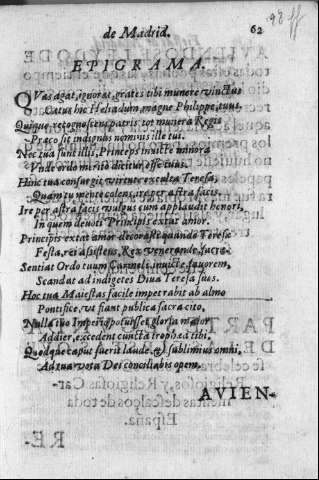 de Madrid. 62
EPIGRAMA.
QVas agat, ignorat, grates tibi munere vinctus
Cœtus hic Heliadum, magne Philippe, tuus.
Quique, recognoscens patris tot munera Regis
Præco sit indignus nominis ille tui.
Nec tua sunt illis, Princeps inuicte minora
Vnde ordo merito dicitur esse tuus.
Hinc tua consurgit, virtute exculta Teresa,
Quam tu mente colens, ire per astra facis.
Ire per astra facis vulgus cum applaudit honori,
In quem deuoti Principis extat amor.
Principis extat amor decorast quando Teresæ
Festa, rei assistens, Rex venerande, sacræ.
Sentiat Ordo tuum Carmeli, inuicte, fauorem,
Scandat ad indigetes Diua Teresa suos.
Hoc tua Maiestas facile impetrabit ab almo
Pontifice, vt fiant publica sacra cito,
Nulla tuo Imperio potuisset gloria maior
Addier, excedent cuncta trophæa tibi.
Quodque caput fuerit laudē, & sublimius omni,
Ad tua vota Dei conciliabis opem.
AVIEN-